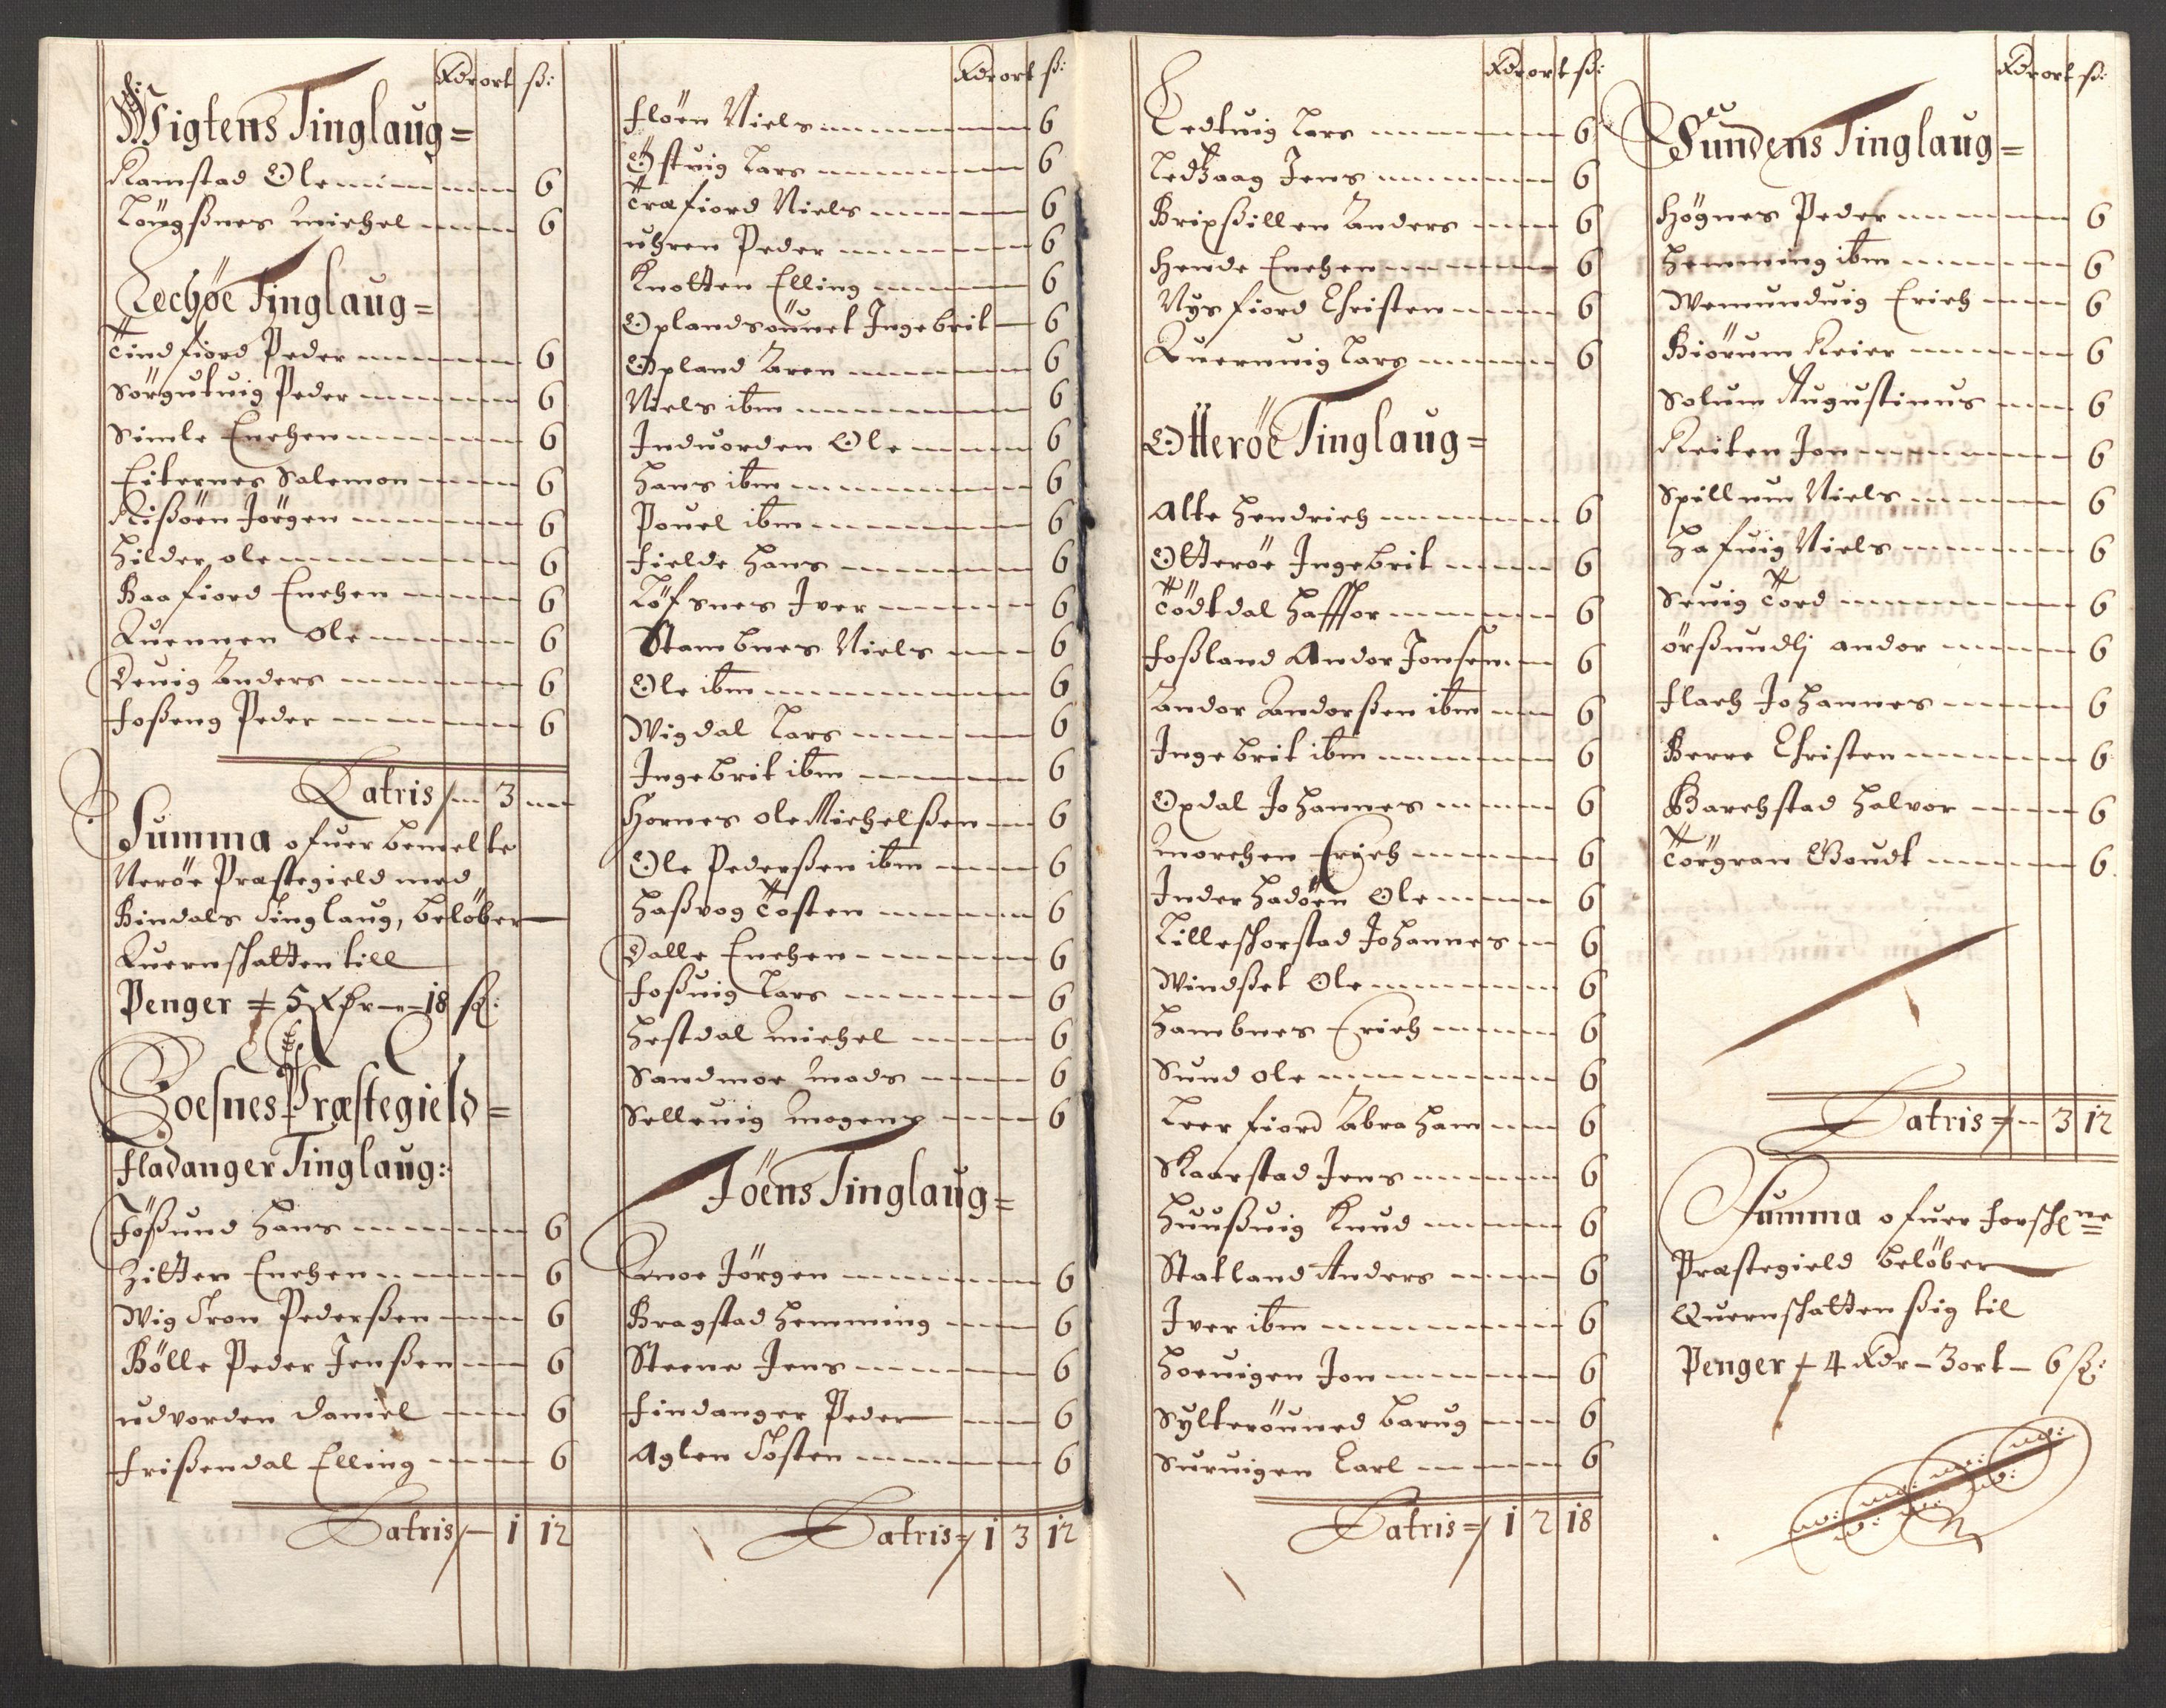 Rdr ort ß:
Wigtens Tinglaug =
Ramstad Ole 6
Löugßnes Michel 6
Lechöe Tinglaug =
Tindfiord Peder 6
Sörgutuig Peder 6
Simle Enchen 6
Eiternes Salemon 6
Rißöen Jörgen 6
Hilder ole 6
Baafiord Enchen 6
Quennen Ole 6
Deuig Anders 6
Foßeng Peder 6
Latris 3
Summa ofuer bemelte
Neröe Præstegield med
Bindals Tinglaug, belöber
Quernschatten till
Penger 5 Rdr 18 ß:
Foesnes Præstegield =
Fladanger Tinglaug:
Jößund Hans 6
Zitter Enchen 6
Wig Tron Pederßen 6
Bölle Peder Jenßen 6
udvorden Daniel 6
Frißendal Elling 6
Latris 1 12
Rdr ort ß:
Flöen Niels 6
Östuig Lars 6
Træfiord Niels 6
uhren Peder 6
Knotten Elling 6
Oplandsöuuet Ingebrit 6
Opland Aren 6
Niels ibm 6
Induorden Ole 6
Hans ibm 6
Pouel ibm 6
Fielde Hans 6
Löfsnes Iver 6
Stambnes Niels 6
Ole ibm 6
Wigdal Lars 6
Ingebrit ibm 6
Hornes Ole Michelßen 6
Ole Pederßen ibm 6
Haßvog Tosten 6
Dalle Enchen 6
Foßuig Lars 6
Hestdal Michel 6
Sandmoe Mads 6
Selleuig Mogens 6
Föens Tinglaug =
Amoe Jörgen 6
Bragstad Hemming 6
Steene Jens 6
Findanger Peder 6
Aglen Tosten 6
Latris = 1 3 12
Rdr ort ß:
Tedtuig Lars 6
Ledhaag Jens 6
Bripßillen Anders 6
Hende Enchen 6
Nysfiord Christen 6
Quernuig Lars 6
Otterøe Tinglaug =
Alte Hendrich 6
Otteröe Ingebrit 6
Tödtdal Haffthor 6
Foßland Andor Jonsen 6
Andor Andorßen ibm 6
Ingebrit ibm 6
Opdal Johannes 6
Morchen Erich 6
Inder Hadöen Ole 6
Lilleschorstad Johannes 6
Windßet Ole 6
Hambnes Erich 6
Sund ole 6
Leerfiord Abraham 6
Skaarstad Jens 6
Huußuig Knud 6
Statland Anders 6
Iver ibm 6
Hoeuigen Jon 6
Sylteröuned Barug 6
Suruigen Carl 6
Latris = 1 2 18
Rdr ort ß:
Sundens Tinglaug =
Högnes Peder 6
Hemming ibm 6
Wemunduig Erich 6
Biörum Reier 6
Solum Augustinus 6
Reiten Jon 6
Spillum Niels 6
Hafuig Niels 6
Seuig Tord 6
örßundlj andor 6
Flach Johannes 6
Berre Christen 6
Barchstad Halvor 6
Törgran Goudt 6
Latris 3 12
Summa ofuer forschne
Præstegield belöber
Quernschatten ßig til
Penger 4 Rdr – 3 ort – 6 ß: